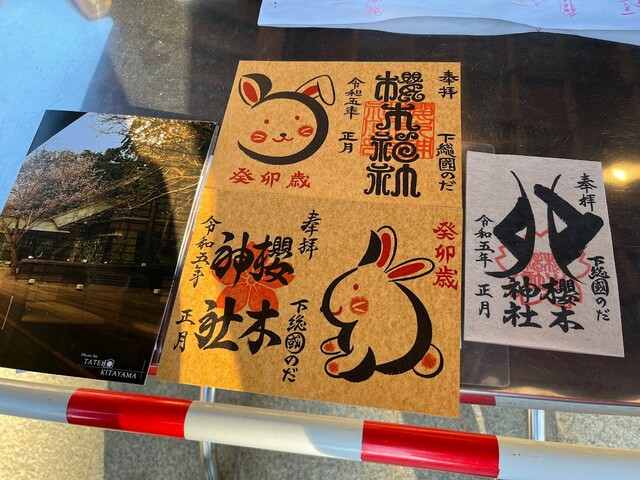 奉拝
下総國のだ
櫻木神社
令和五年
正月
癸卯歳
癸卯歳
奉拝
下総國のだ
櫻木
神社
令和五年
正月
奉拝
下総國のだ
櫻木
神社
令和五年
正月
Photo by
TATEHO
KITAYAMA